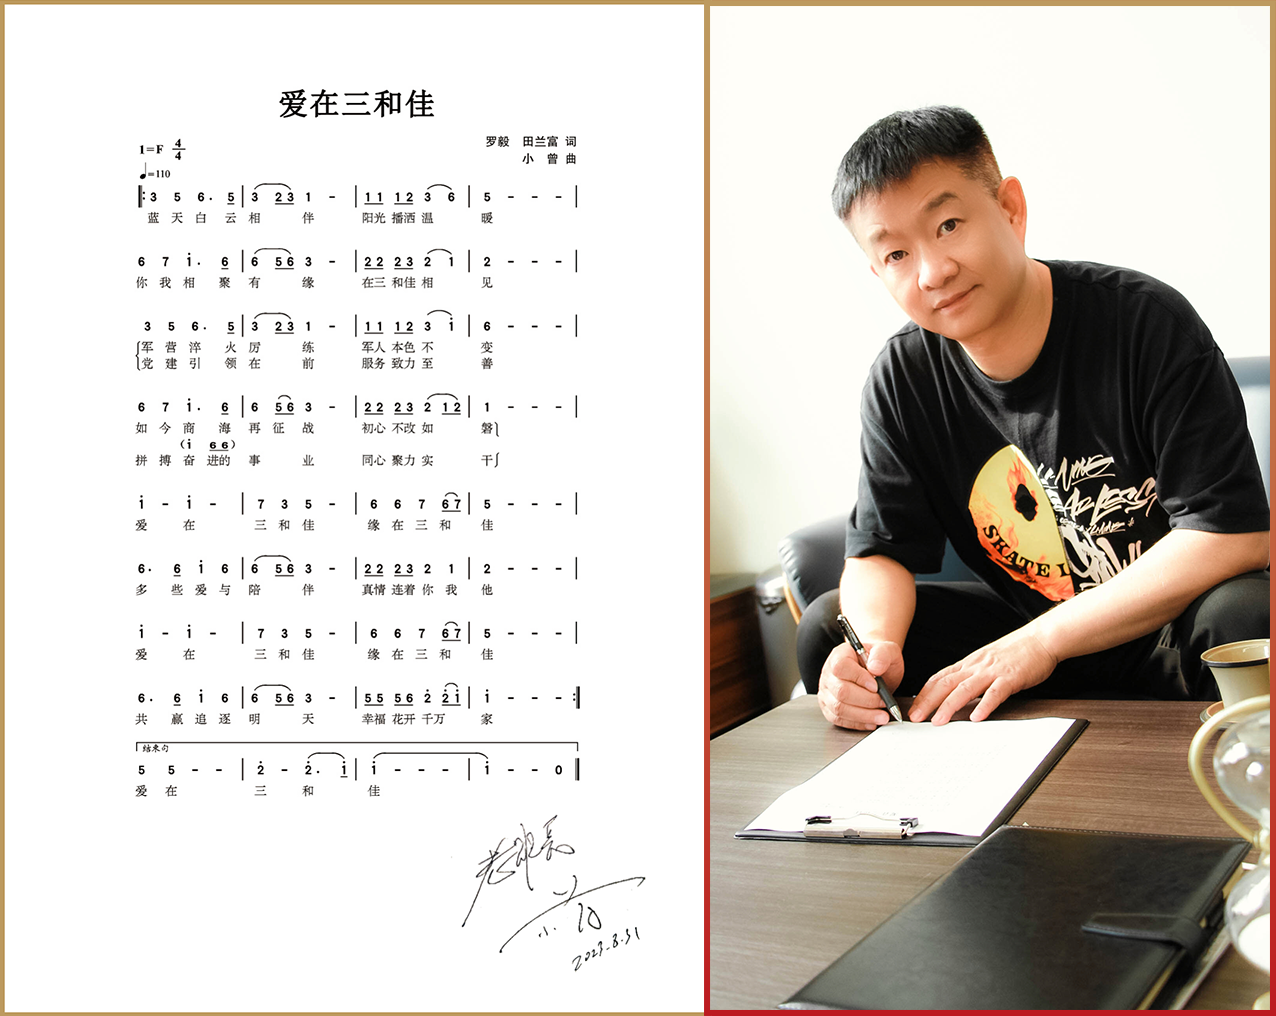 爱在三和佳
1=F 4/4
罗毅 田兰富 词
♩=110
小 曾 曲
3 5 6. 5 | 3 23 1 - | 11 12 3 6 | 5 - - - |
蓝天白云相伴 阳光播洒温暖
6 7 i. 6 | 6 56 3 - | 22 23 2 1 | 2 - - - |
你我相聚有缘 在三和佳相见
3 5 6. 5 | 3 23 1 - | 11 12 3 i | 6 - - - |
军营淬火厉练 军人本色不变
党建引领在前 服务致力至善
6 7 i. 6 | 6 56 3 - | 22 23 2 12 | 1 - - - |
如今商海再征战 初心不改如磐
(i 66)
拼搏奋进的事业 同心聚力实干
i - i - | 7 3 5 - | 6 6 7 67 | 5 - - - |
爱在三和佳 缘在三和佳
6. 6 i 6 | 6 56 3 - | 22 23 2 1 | 2 - - - |
多些爱与陪伴 真情连着你我他
i - i - | 7 3 5 - | 6 6 7 67 | 5 - - - |
爱在三和佳 缘在三和佳
6. 6 i 6 | 6 56 3 - | 55 56 2 2i | i - - - :|
共赢追逐明天 幸福花开千万家
结束句
5 5 - - | 2 - 2. i | i - - - | i - - 0 |
爱在三和佳
小曾
2023.8.31
SKATE